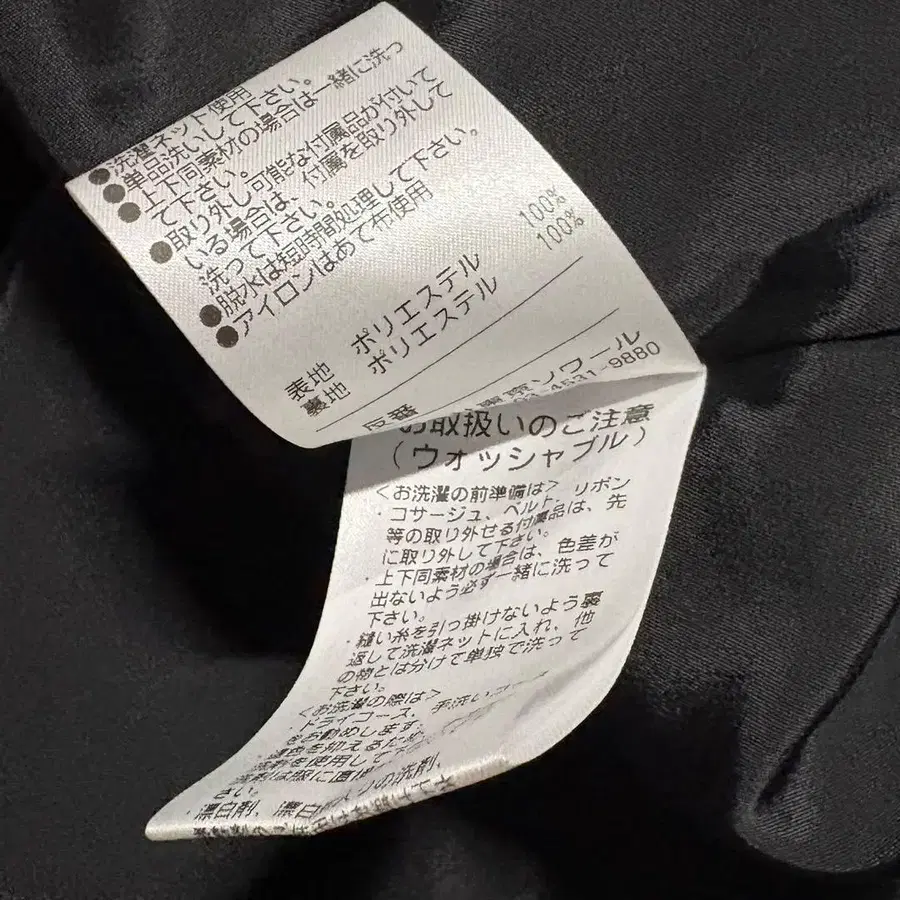 ●洗濯ネット使用
●単品洗いして下さい。
●上下同素材の場合は一緒に洗っ
て下さい。
●取り外し可能な付属品が付いて
いる場合は、付属を取り外して
洗って下さい。
●脱水は短時間処理して下さい。
●アイロンはあて布使用
表地 ポリエステル 100%
裏地 ポリエステル 100%
反番
東京ソワール
03-4531-9880
お取扱いのご注意
(ウォッシャブル)
<お洗濯の前準備は>
・コサージュ、ベルト、リボン
等の取り外せる付属品は、先
に取り外して下さい。
・上下同素材の場合は、色差が
出ないよう必ず一緒に洗って
下さい。
・縫い糸を引っ掛けないよう裏
返して洗濯ネットに入れ、他
の物とは分けて単独で洗って
下さい。
<お洗濯の際は>
・ドライコース、手洗いコース
をお勧めします。
を抑えるため
を使用して
は服に直
さい。
・漂白剤、漂白 の洗剤、